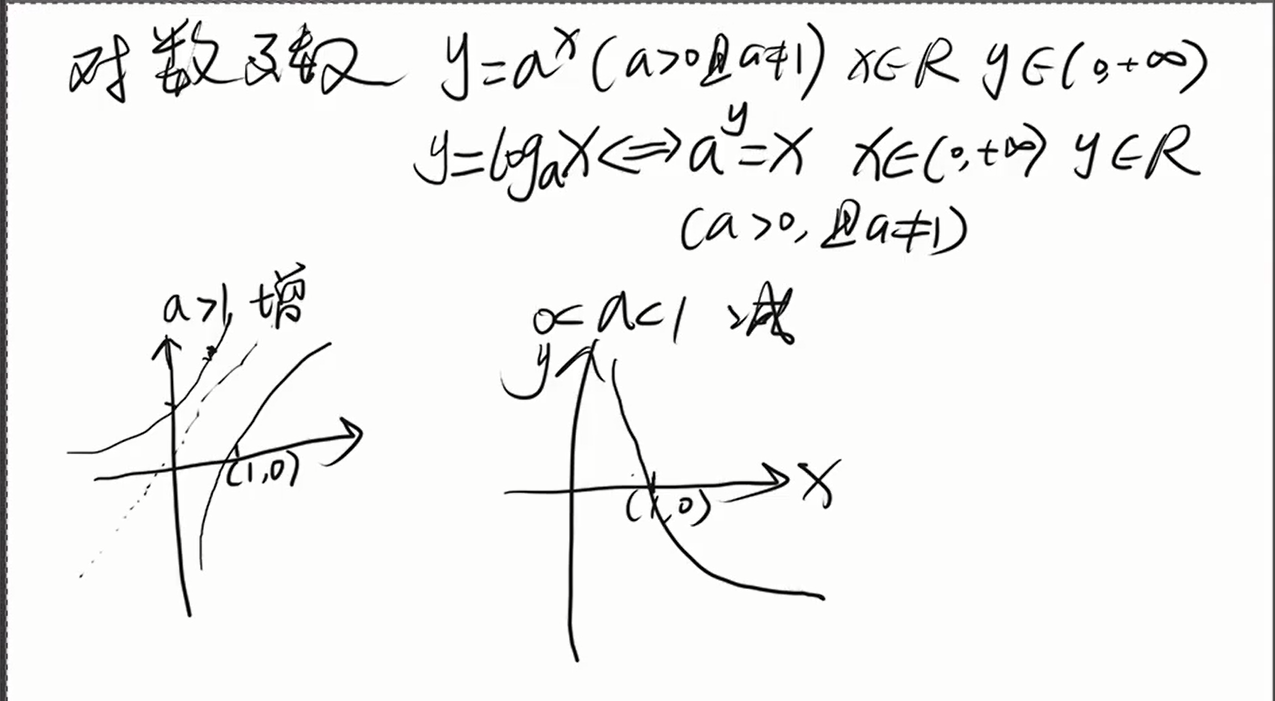 对数函数 y=aˣ(a>0且a≠1) x∈R y∈(0,+∞)
y=logₐx⇔aʸ=x x∈(0,+∞) y∈R
(a>0,且a≠1)
a>1,增
0<a<1 减
y
(1,0)
(1,0)
x